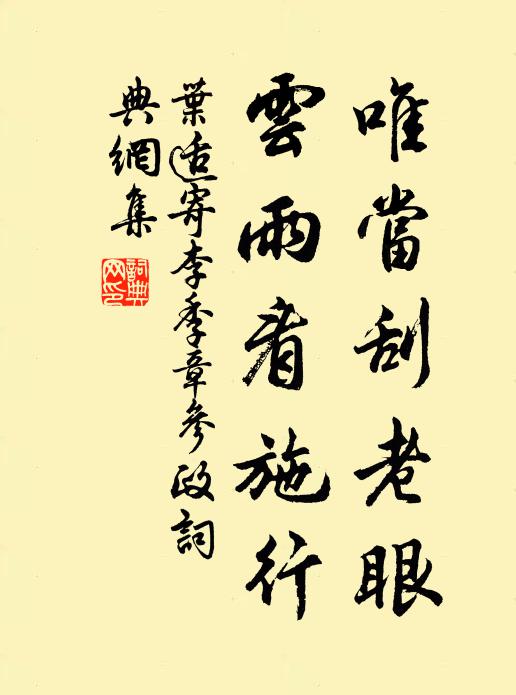 唯當刮老眼
雲雨看施行
葉适寄李季章參政詞
典網集
詞典網印